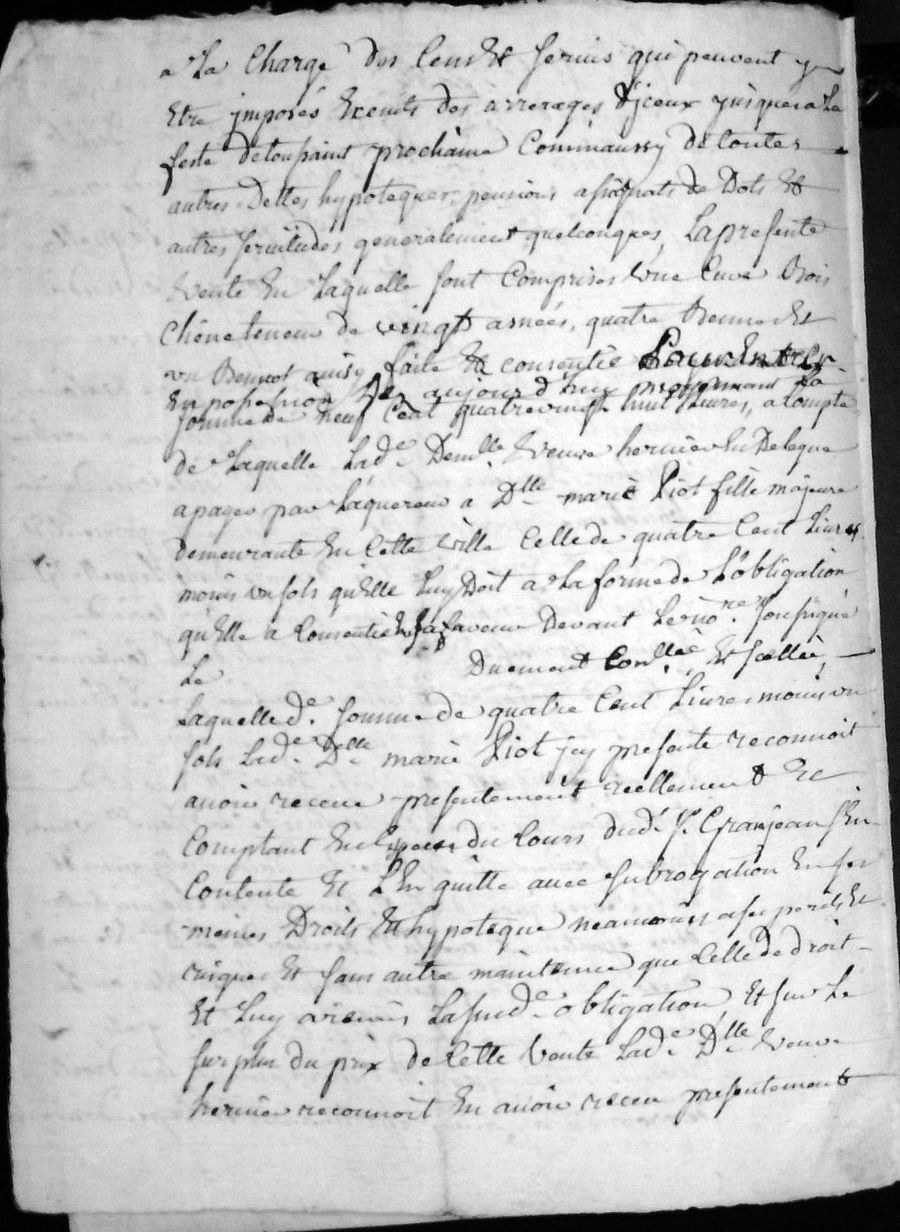 a La Charge des Cens Et servis qui peuvent y
Etre jmposés Exempts des arrerages d'jceux jusques a La
feste de toussaint prochaine Comm'aussy de toutes
autres Dettes hypoteques, pensions assignats de Dots Et
autres servitudes generalement quelconques, La presente
vente En Laquelle sont Comprises Une Cuve Bois
Chêne teneur de vingt asnées, quatre Bennes Et
un Bennot ainsy faite Et consentie Pour Entrer
En possession dez aujourd'huy moyennant La
somme de neuf Cent quatrevingt huit Livres, a Compte
de Laquelle Lade. Demlle. Veuve hernier En Delegue
a payer par L'aquereur a Dlle. marie Piot fille majeure
demeurante En Cette ville Celle de quatre Cent Livres
moins un sols qu'Elle Luy Doit a La forme de L'obligation
qu'Elle a Consentie En sa faveur Devant Le no.re soussigné
Le Duement Con.llée Et scellée,
Laquelle de. somme de quatre Cent Livres moins un
sols Lade. Dlle. marie Piot jcy presente reconnoit
avoir receue presentement reellement Et
Comptant En Especes du Cours dud. sr. Granjean s'En
Contente Et L'En quitte avec subrogation En ses
mêmes Droits Et hypoteque neamoins a ses perils Et
risques Et sans autre maintenue que Celle de droit
Et Luy a remis La susde. obligation, Et sur Le
surplus du prix de Cette Vente Lade. Dlle. veuve
hernier reconnoit En avoir receu presentement